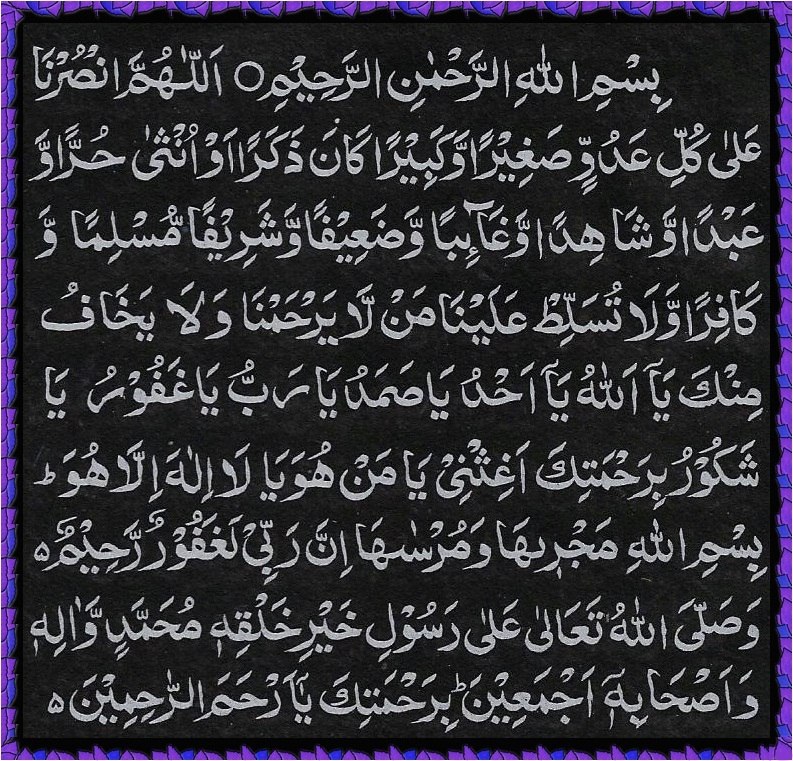 بِسْمِ اللهِ الرَّحْمٰنِ الرَّحِيْمِ ○ اَللّٰهُمَّ انْصُرْنَا
عَلىٰ كُلِّ عَدُوٍّ صَغِيْرًا وَّكَبِيْرًا كَانَ ذَكَرًا اَوْ اُنْثىٰ حُرًّا وَّ
عَبْدًا وَّ شَاهِدًا وَّغَآئِبًا وَّضَعِيْفًا وَّشَرِيْفًا مُّسْلِمًا وَّ
كَافِرًا وَّلَا تُسَلِّطْ عَلَيْنَا مَنْ لَّا يَرْحَمْنَا وَلَا يَخَافُ
مِنْكَ يَآ اَللهُ يَآ اَحَدُ يَا صَمَدُ يَا رَبُّ يَا غَفُوْرُ يَا
شَكُوْرُ بِرَحْمَتِكَ اَغِثْنِيْ يَا مَنْ هُوَ يَا لَا اِلٰهَ اِلَّا هُوَ ؕ
بِسْمِ اللهِ مَجْرٖىهَا وَمُرْسٰىهَا اِنَّ رَبِّيْ لَغَفُوْرٌ رَّحِيْمٌ ٥
وَصَلَّى اللهُ تَعَالىٰ عَلىٰ رَسُوْلِ خَيْرِ خَلْقِهٖ مُحَمَّدٍ وَّاٰلِهٖ
وَاَصْحَابِهٖٓ اَجْمَعِيْنَ ؕ بِرَحْمَتِكَ يَآ اَرْحَمَ الرّٰحِمِيْنَ ٥